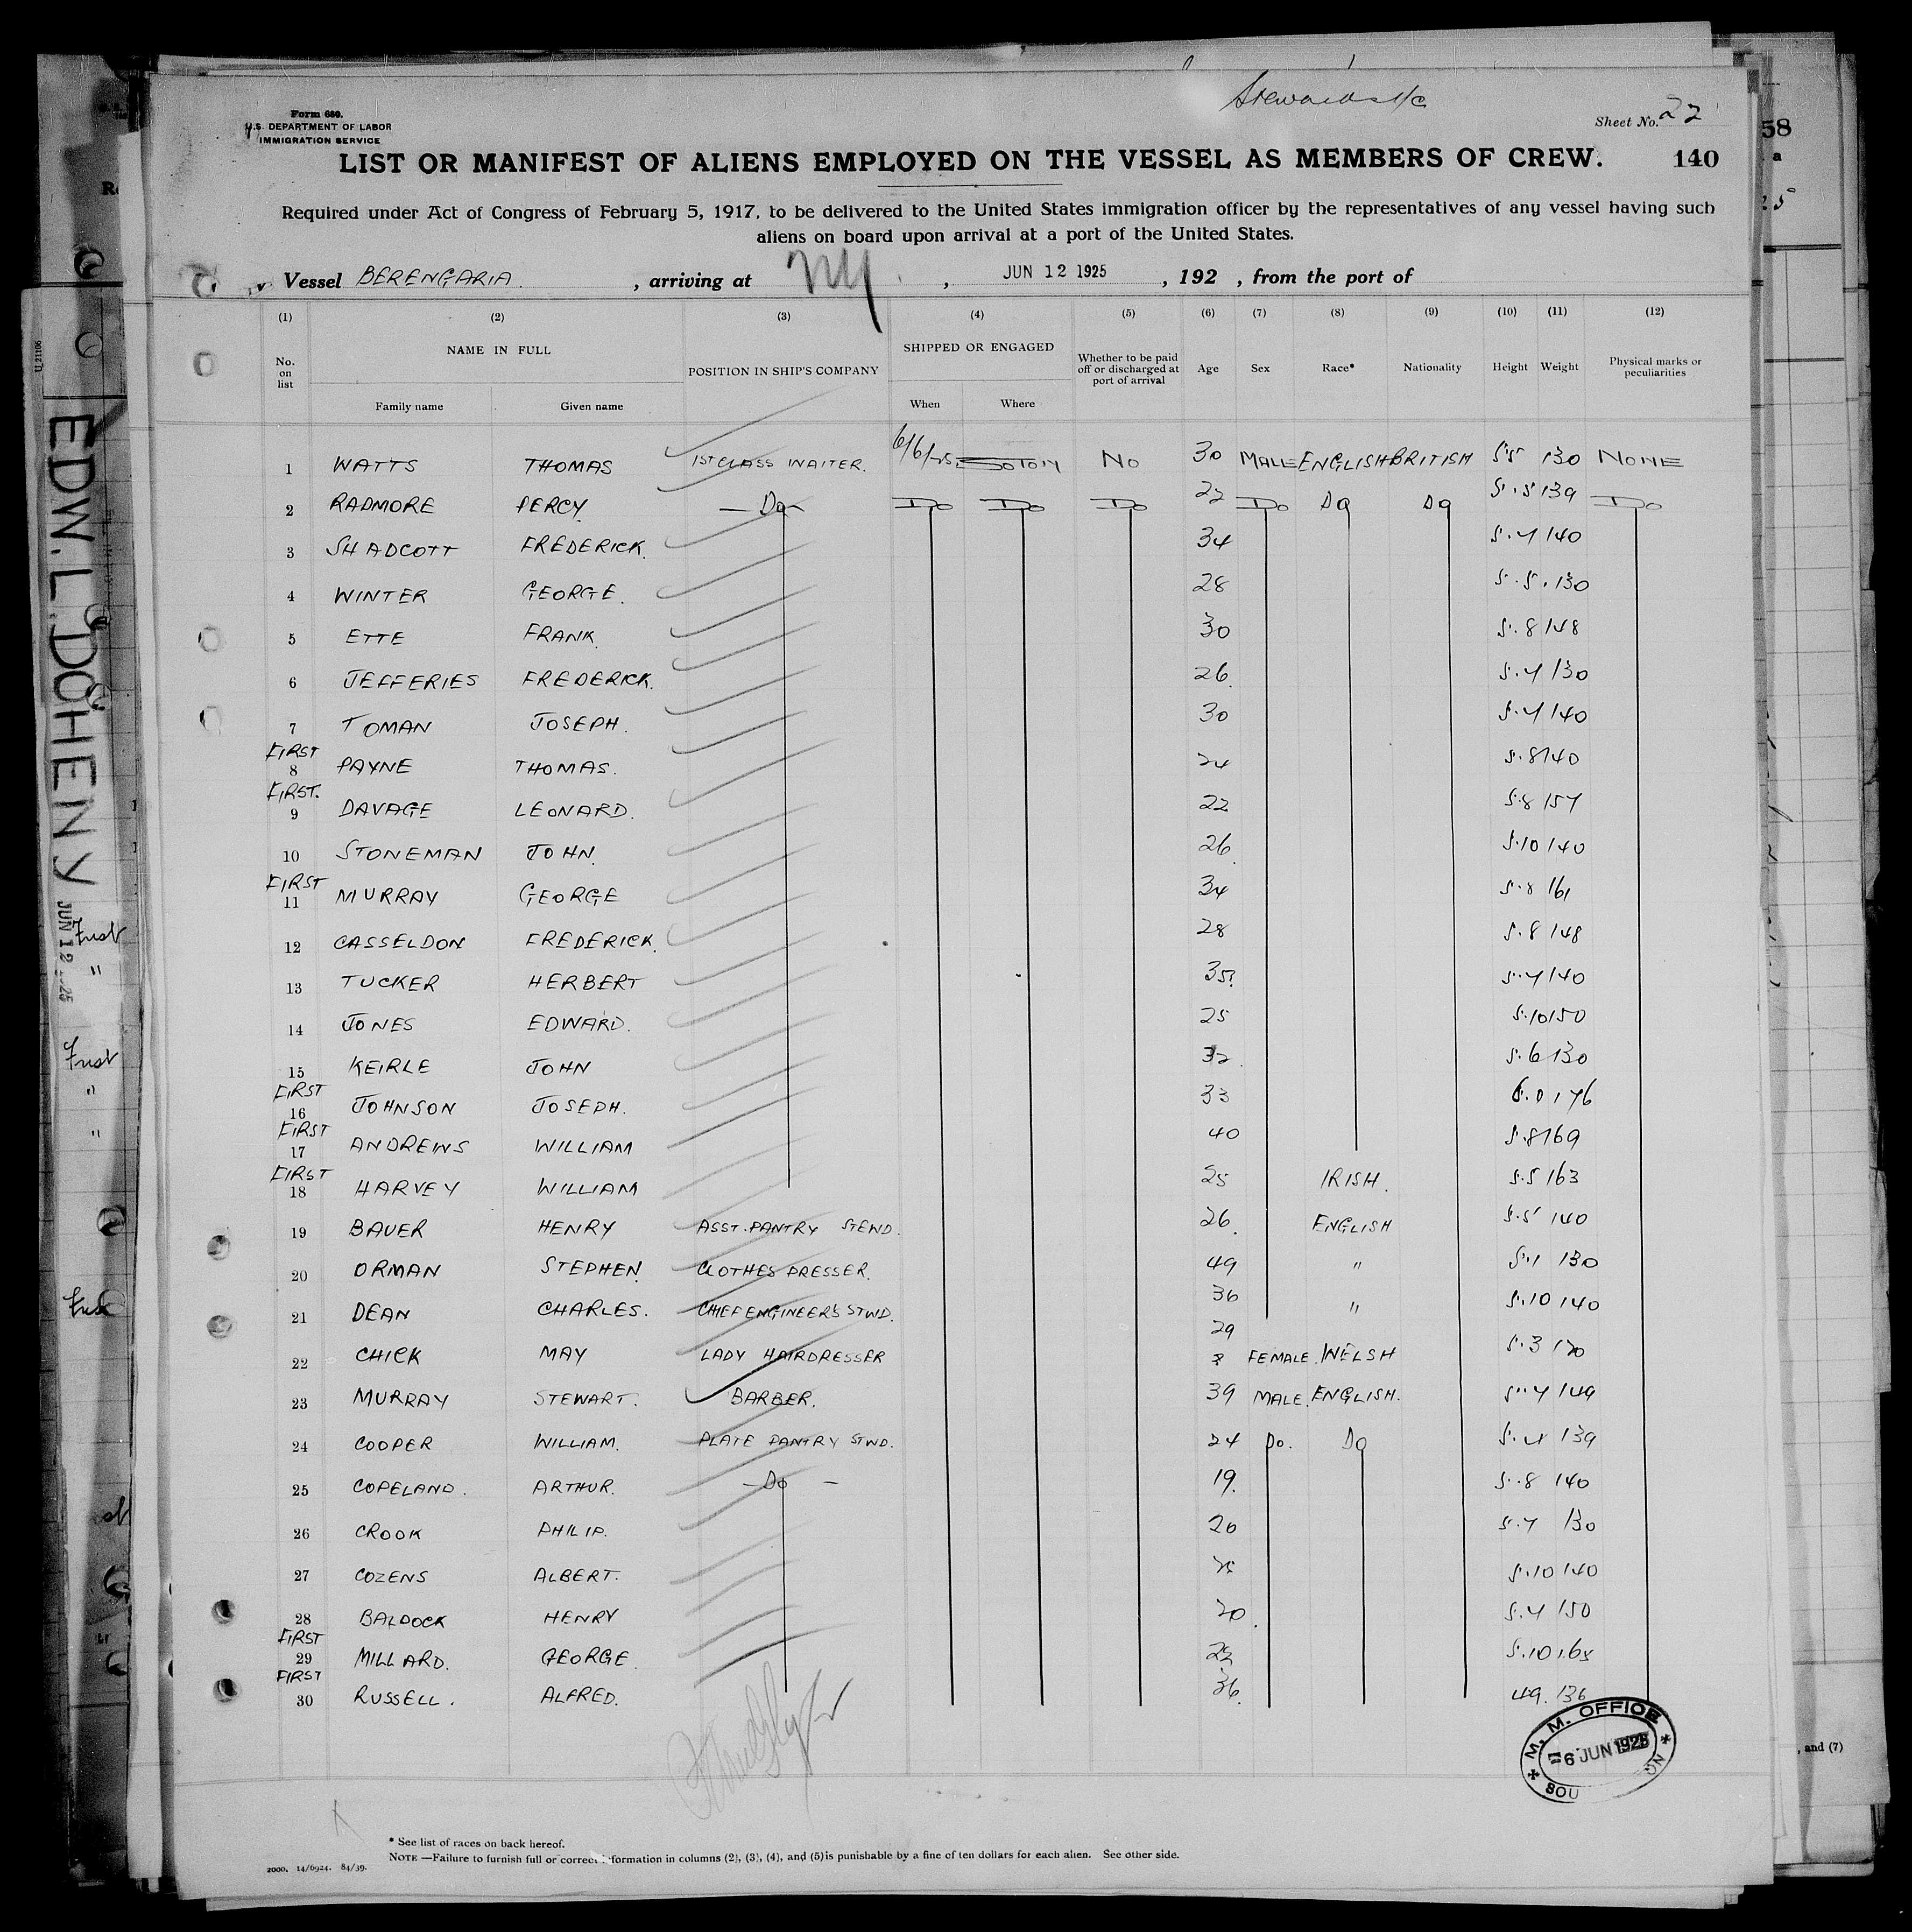 Stewards d/c
Form 680.
U.S. DEPARTMENT OF LABOR
IMMIGRATION SERVICE
Sheet No. 22
LIST OR MANIFEST OF ALIENS EMPLOYED ON THE VESSEL AS MEMBERS OF CREW. 140
Required under Act of Congress of February 5, 1917, to be delivered to the United States immigration officer by the representatives of any vessel having such
aliens on board upon arrival at a port of the United States.
Vessel BERENGARIA. , arriving at NY. , JUN 12 1925 , 192 , from the port of
(1) (2) (3) (4) (5) (6) (7) (8) (9) (10) (11) (12)
No. on list NAME IN FULL POSITION IN SHIP'S COMPANY SHIPPED OR ENGAGED Whether to be paid off or discharged at port of arrival Age Sex Race* Nationality Height Weight Physical marks or peculiarities
Family name Given name When Where
1 WATTS THOMAS 1ST CLASS WAITER. 6/6/25. SOTON NO 30 MALE ENGLISH BRITISH 5.5 130 NONE
2 RADMORE PERCY. — Do — Do Do Do 22 Do Do Do 5.5 139 Do
3 SHADCOTT FREDERICK. 34 5.7 140
4 WINTER GEORGE. 28 5.5. 130
5 ETTE FRANK. 30 5.8 148
6 JEFFERIES FREDERICK. 26. 5.7 130
7 TOMAN JOSEPH. 30 5.7 140
FIRST
8 PAYNE THOMAS. 24 5.8 140
FIRST.
9 DAVAGE LEONARD. 22 5.8 157
10 STONEMAN JOHN. 26. 5.10 140
FIRST
11 MURRAY GEORGE 34 5.8 161
12 CASSELDON FREDERICK. 28 5.8 148
13 TUCKER HERBERT 35 5.7 140
14 JONES EDWARD. 25 5.10 150
15 KEIRLE JOHN 32. 5.6 130
FIRST
16 JOHNSON JOSEPH. 33 6.0 176
FIRST
17 ANDREWS WILLIAM 40 5.8 169
FIRST
18 HARVEY WILLIAM 25 IRISH. 5.5 163
19 BAUER HENRY ASST. PANTRY STEWD. 26. ENGLISH 5.5 140
20 ORMAN STEPHEN. CLOTHES PRESSER. 49 " 5.1 130
21 DEAN CHARLES. CHIEF ENGINEER'S STWD. 36 " 5.10 140
22 CHICK MAY LADY HAIRDRESSER 29 FEMALE. WELSH 5.3 120
23 MURRAY STEWART. BARBER. 39 MALE. ENGLISH. 5.7 149
24 COOPER WILLIAM. PLATE PANTRY STWD. 24 Do. Do 5.4 139
25 COPELAND. ARTHUR. — Do — 19. 5.8 140
26 CROOK PHILIP. 20 5.7 130
27 COZENS ALBERT. 5.10 140
28 BALDOCK HENRY 20. 5.7 150
FIRST
29 MILLARD. GEORGE. 5.10
FIRST
30 RUSSELL. ALFRED. 36. 4.9. 136
M. M. OFFICE
6 JUN 1925
SOU ON
* See list of races on back hereof.
NOTE —Failure to furnish full or correct information in columns (2), (3), (4), and (5) is punishable by a fine of ten dollars for each alien. See other side.
2000. 14/6924. 84/39.
U 21106
EDW. L. DOHENY
JUN 12 25
First
"
First
"
"
First
st
58
a
25
, and (7)